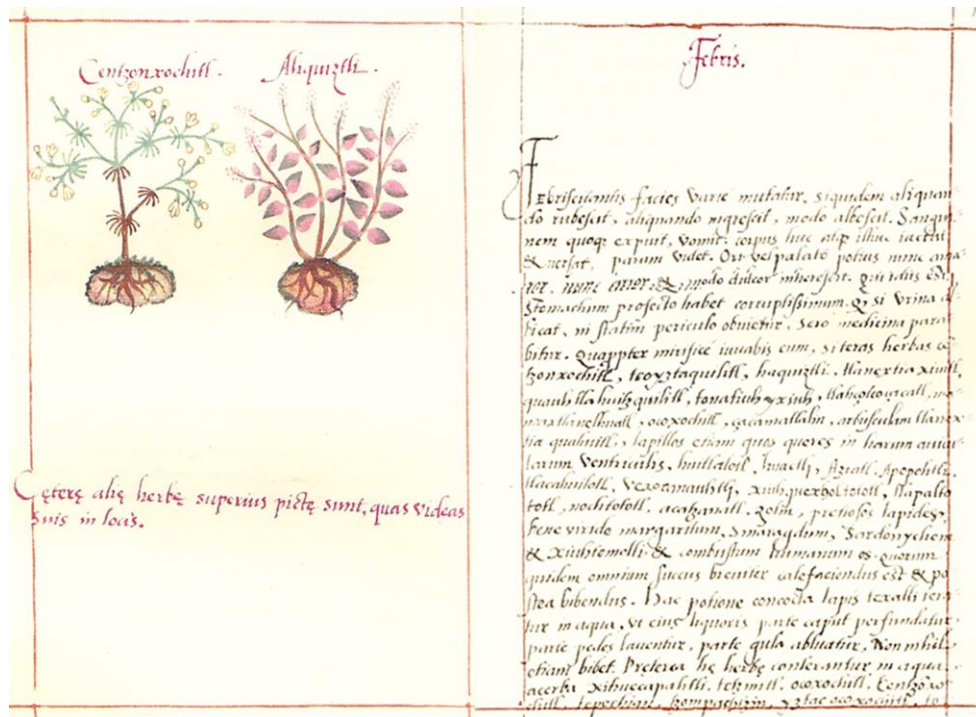 Centzonxochitl. Aliquiztli.
Cęterę alię herbę superius pictę sunt, quas videas
suis in locis.
Febris.
Febriscitantis facies varie mutatur, siquidem aliquan
do rubescit, aliquando nigrescit, modo albescit. Sangui
nem quoq; expuit, vomit: corpus huc atq; illuc iactat
& versat, parum videt. Ori vel palato potius nunc ama
ror, nunc &, modo dulcor inherescit. qui idiis est,
Stomachum profecto habet corruptissimum. Qz si vrina al
ficat, ni statim periculo obuietur, sero medicina para
bitur. Quappter mirificè iuuabis eum, si teras herbas cē
tzonxochitl, teoyztaquilitl, haquiztli, tlanextia xiuitl,
quauhtlahuitzquilitl, tonatiuh yxiuh, tlahçolteoçacatl,
ocoxochitl, çacamatlalin, arbusculum tlanex
tia quahuitl, lapillos etiam quos queres in harum auicu
larum ventriculis, huitlalotl, huactli, Aztatl, Apopohtli,
tlacahuilotl, Vexocanauhtli, xiuh quechol tototl, tlapalto
totl, nochtototl, acatzanatl, zolin, pretiosos lapides,
bene viride margaritum, Smaragdum, Sardonychem
& xiuhtomolli & combustum humanum os quorum
quidem omnium succus breuiter calefaciendus est & po
stea bibendus. Hac potione concocta lapis texalli tera
tur in aqua, vt eius liquoris parte caput perfundatur,
parte pedes lauentur, parte gula abluatur, Non nihil
etiam bibet. Pręterea hę herbę conterantur in aqua
acerba xihuecapahtli, tetzmitl, ocoxochitl, Centzonxo
chitl, tepechian, tzompachizin, yztac ocoxochitl, te